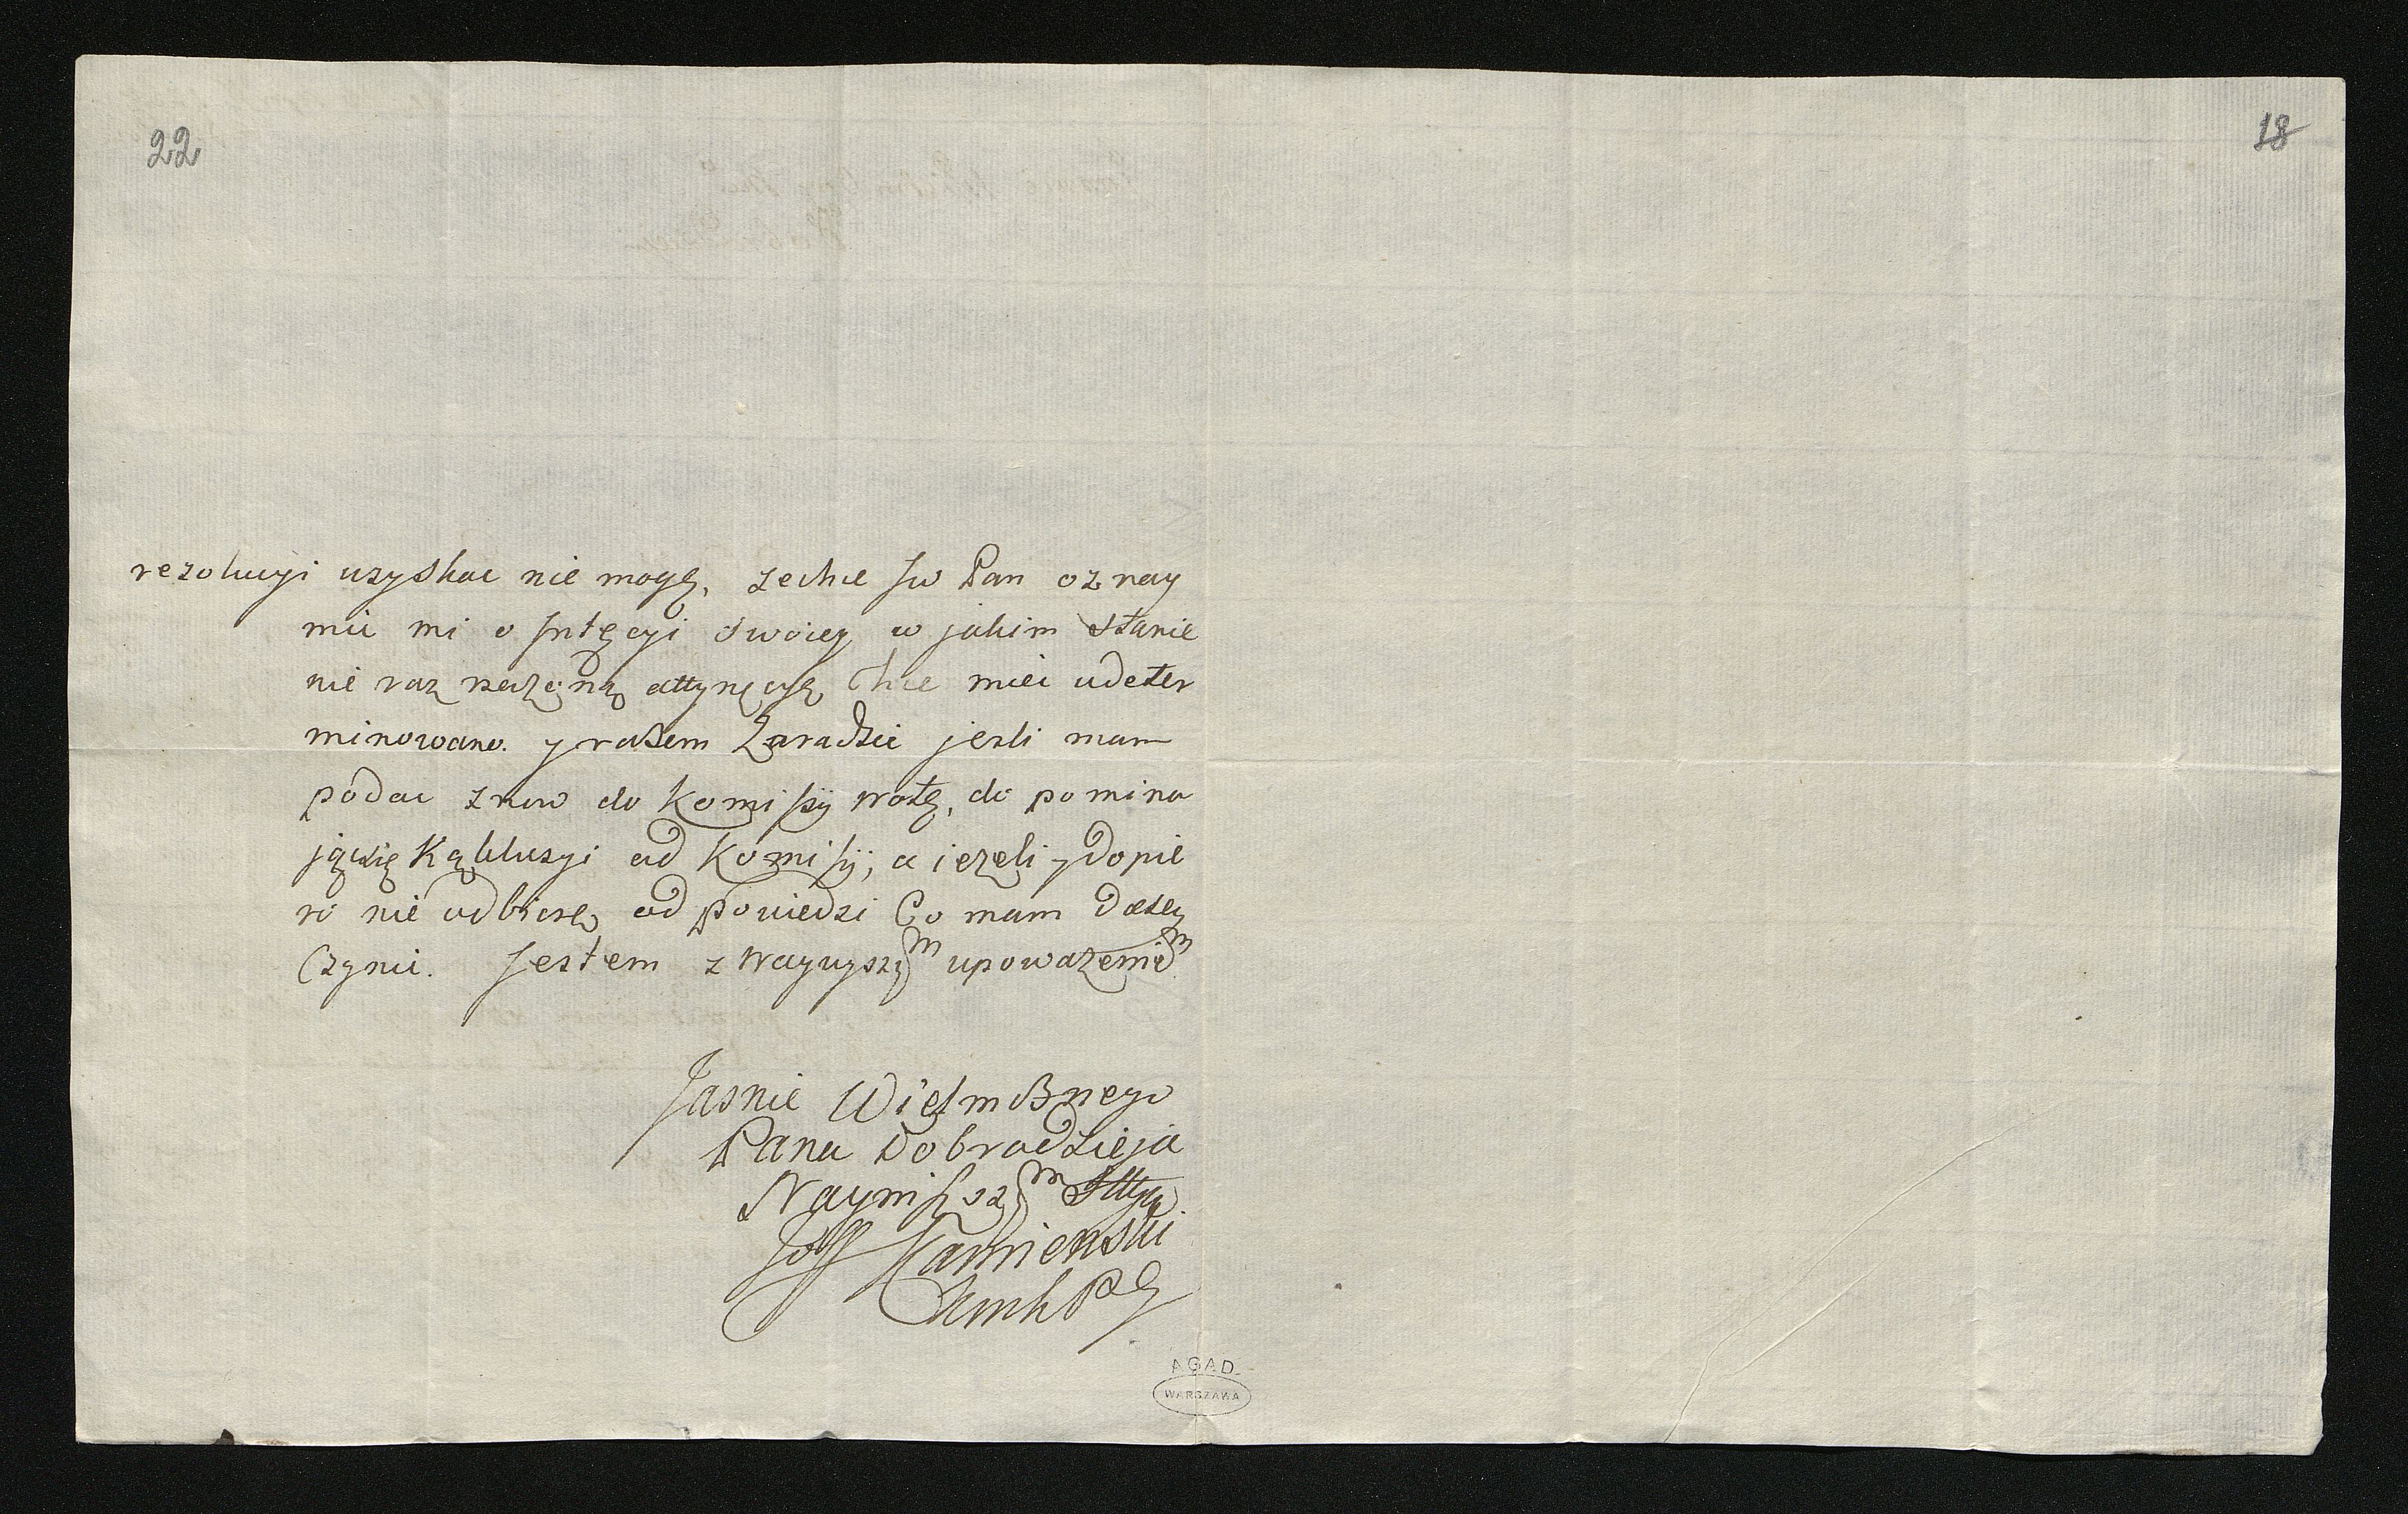 22
18
rezolucyi uzyskac nie mogę, zechce Jw Pan oznay
mic mi o Jntęcyi swoiey w jakim stanie
nie raz rzeczoną attynęcyę Chce miec udeter
minowano. y razem Zaradzic jezli mam
podac znow do Komissyi notę, do pomina
jącsię Kąkluzyi od Komissyi, a iezeli y Dopie
ro nie odbiorę od powiedzi Co mam Daley
Czynic. Jestem z Naywyszym upowazeniem
Jasnie Wielmoznego
Pana Dobrodzieja
Nayniszszym Sługą
Józff Kamienski
AGAD
WARSZAWA